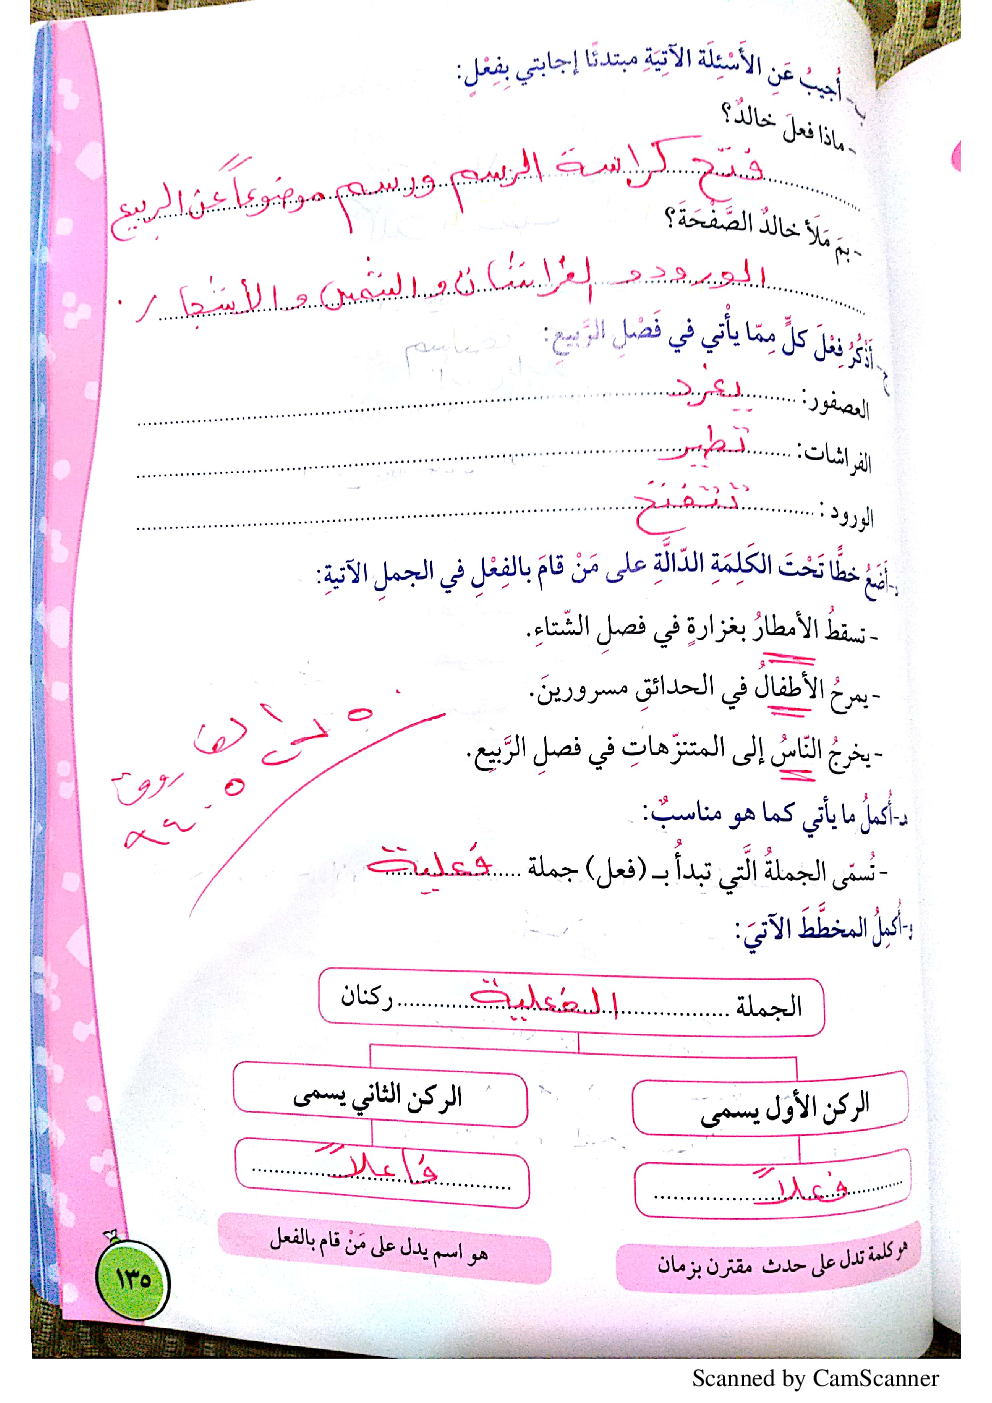 ب- أُجيبُ عَنِ الأَسْئِلَة الآتِيَةِ مبتدئًا إجابتي بِفِعْلٍ:
- ماذا فعلَ خالدٌ؟
فتح كراسة الرسم ورسم موضوعاً عن الربيع
- بمَ مَلَأَ خالدٌ الصَّفْحَةَ؟
الورود و الفراشات و الشمس و الأشجار.
ج- أَذْكُرُ فِعْلَ كلٍّ مِمّا يأْتي في فَصْلِ الرَّبيعِ:
العصفور: يغرد
الفراشات: تطير
الورود: تتفتح
د-أَضَعُ خطًّا تَحْتَ الكَلِمَةِ الدّالَّةِ على مَنْ قامَ بالفِعْلِ في الجملِ الآتيةِ:
- تسقطُ الأمطارُ بغزارةٍ في فصلِ الشّتاءِ.
- يمرحُ الأطفالُ في الحدائقِ مسرورينَ.
- يخرجُ النّاسُ إلى المتنزّهاتِ في فصلِ الرَّبيع.
د-أُكملُ ما يأتي كما هو مناسبٌ:
- تُسمّى الجملةُ الَّتي تبدأُ بـ (فعل) جملة فعلية
و-أُكمِلُ المخطَّطَ الآتيَ:
الجملة الفعلية ركنان
الركن الأول يسمى
الركن الثاني يسمى
فعلاً
فاعلاً
هو كلمة تدل على حدث مقترن بزمان
هو اسم يدل على مَنْ قام بالفعل
١٣٥
Scanned by CamScanner